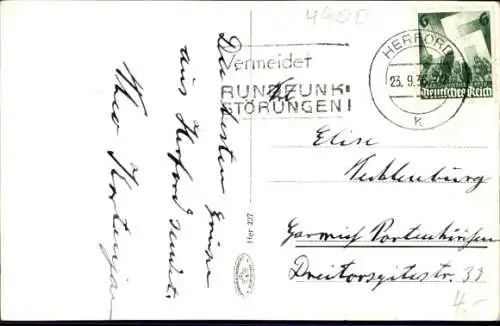 4900
Vermeidet
RUNDFUNK-
STÖRUNGEN!
HERFORD
23.9.36
k
6 6
Deutsches Reich
Die besten Grüsse
aus Herford sendet
Theo
Elise
Mecklenburg
Garmisch Partenkirchen
Dreitorspitzstr. 32
Her 227
4,-